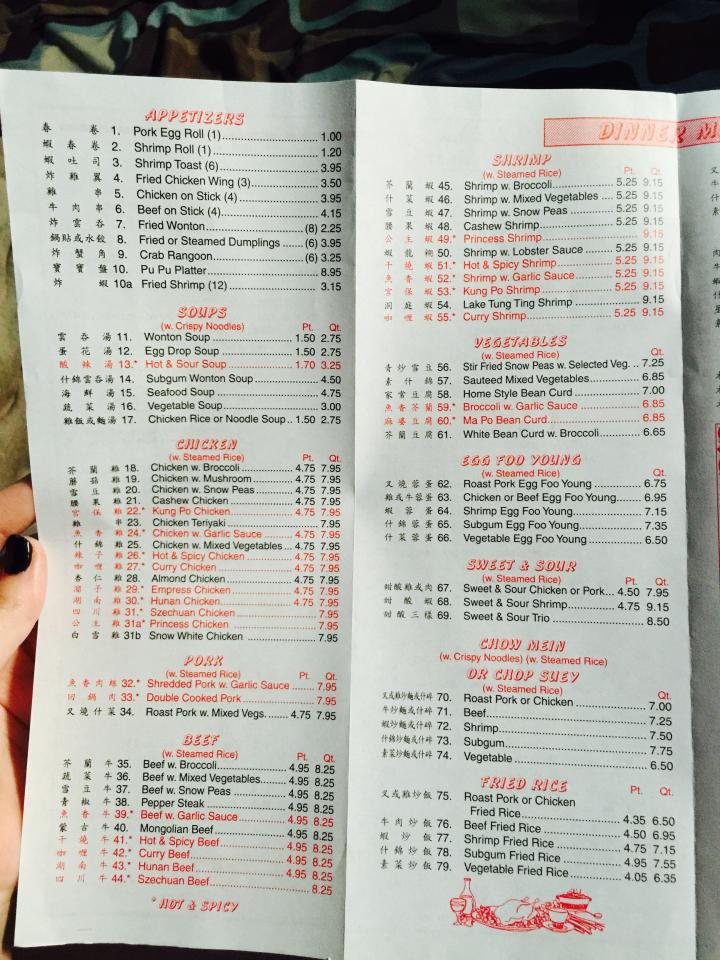 APPETIZERS
春卷 1. Pork Egg Roll (1) 1.00
蝦春卷 2. Shrimp Roll (1) 1.20
蝦吐司 3. Shrimp Toast (6) 3.95
炸雞翼 4. Fried Chicken Wing (3) 3.50
雞串 5. Chicken on Stick (4) 3.95
牛肉串 6. Beef on Stick (4) 4.15
炸雲吞 7. Fried Wonton (8) 2.25
鍋貼或水餃 8. Fried or Steamed Dumplings (6) 3.95
炸蟹角 9. Crab Rangoon (6) 3.25
寶寶盤 10. Pu Pu Platter 8.95
炸蝦 10a Fried Shrimp (12) 3.15
SOUPS
(w. Crispy Noodles) Pt. Qt.
雲吞湯 11. Wonton Soup 1.50 2.75
蛋花湯 12. Egg Drop Soup 1.50 2.75
酸辣湯 13.* Hot & Sour Soup 1.70 3.25
什錦雲吞湯 14. Subgum Wonton Soup 4.50
海鮮湯 15. Seafood Soup 4.75
蔬菜湯 16. Vegetable Soup 3.00
雞飯或麵湯 17. Chicken Rice or Noodle Soup 1.50 2.75
CHICKEN
(w. Steamed Rice) Pt. Qt.
芥蘭雞 18. Chicken w. Broccoli 4.75 7.95
蘑菇雞 19. Chicken w. Mushroom 4.75 7.95
雪豆雞 20. Chicken w. Snow Peas 4.75 7.95
腰果雞 21. Cashew Chicken 4.75 7.95
宮保雞 22.* Kung Po Chicken 4.75 7.95
雞串 23. Chicken Teriyaki 7.95
魚香雞 24.* Chicken w. Garlic Sauce 4.75 7.95
什錦雞 25. Chicken w. Mixed Vegetables 4.75 7.95
辣子雞 26.* Hot & Spicy Chicken 4.75 7.95
咖喱雞 27.* Curry Chicken 4.75 7.95
杏仁雞 28. Almond Chicken 4.75 7.95
雞 29.* Empress Chicken 4.75 7.95
湖南雞 30.* Hunan Chicken 4.75 7.95
四川雞 31.* Szechuan Chicken 7.95
公主雞 31a* Princess Chicken 7.95
白雪雞 31b Snow White Chicken 7.95
PORK
(w. Steamed Rice) Pt. Qt.
魚香肉絲 32.* Shredded Pork w. Garlic Sauce 7.95
回鍋肉 33.* Double Cooked Pork 7.95
叉燒什菜 34. Roast Pork w. Mixed Vegs. 4.75 7.95
BEEF
(w. Steamed Rice) Pt. Qt.
芥蘭牛 35. Beef w. Broccoli 4.95 8.25
蔬菜牛 36. Beef w. Mixed Vegetables 4.95 8.25
雪豆牛 37. Beef w. Snow Peas 4.95 8.25
青椒牛 38. Pepper Steak 4.95 8.25
魚香牛 39.* Beef w. Garlic Sauce 4.95 8.25
蒙古牛 40. Mongolian Beef 4.95 8.25
干燒牛 41.* Hot & Spicy Beef 4.95 8.25
咖喱牛 42.* Curry Beef 4.95 8.25
湖南牛 43.* Hunan Beef 4.95 8.25
四川牛 44.* Szechuan Beef 8.25
* HOT & SPICY
DINNER M
SHRIMP
(w. Steamed Rice) Pt. Qt.
芥蘭蝦 45. Shrimp w. Broccoli 5.25 9.15
什菜蝦 46. Shrimp w. Mixed Vegetables 5.25 9.15
雪豆蝦 47. Shrimp w. Snow Peas 5.25 9.15
腰果蝦 48. Cashew Shrimp 5.25 9.15
公主蝦 49.* Princess Shrimp 9.15
蝦龍糊 50. Shrimp w. Lobster Sauce 5.25 9.15
干燒蝦 51.* Hot & Spicy Shrimp 5.25 9.15
魚香蝦 52.* Shrimp w. Garlic Sauce 5.25 9.15
宮保蝦 53.* Kung Po Shrimp 5.25 9.15
洞庭蝦 54. Lake Tung Ting Shrimp 9.15
咖喱蝦 55.* Curry Shrimp 5.25 9.15
VEGETABLES
(w. Steamed Rice) Qt.
青炒雪豆 56. Stir Fried Snow Peas w. Selected Veg. 7.25
素什錦 57. Sauteed Mixed Vegetables 6.85
家常豆腐 58. Home Style Bean Curd 7.00
魚香芥蘭 59.* Broccoli w. Garlic Sauce 6.85
麻婆豆腐 60.* Ma Po Bean Curd 6.85
芥蘭豆腐 61. White Bean Curd w. Broccoli 6.65
EGG FOO YOUNG
(w. Steamed Rice)
叉燒蓉蛋 62. Roast Pork Egg Foo Young 6.75
雞或牛蓉蛋 63. Chicken or Beef Egg Foo Young 6.95
蝦蓉蛋 64. Shrimp Egg Foo Young 7.15
什錦蓉蛋 65. Subgum Egg Foo Young 7.35
什菜蓉蛋 66. Vegetable Egg Foo Young 6.50
SWEET & SOUR
(w. Steamed Rice) Pt. Qt.
甜酸雞或肉 67. Sweet & Sour Chicken or Pork 4.50 7.95
甜酸蝦 68. Sweet & Sour Shrimp 4.75 9.15
甜酸三樣 69. Sweet & Sour Trio 8.50
CHOW MEIN
(w. Crispy Noodles) (w. Steamed Rice)
OR CHOP SUEY
(w. Steamed Rice) Qt.
叉或雞炒麵或什碎 70. Roast Pork or Chicken 7.00
牛炒麵或什碎 71. Beef 7.25
蝦炒麵或什碎 72. Shrimp 7.50
什錦炒麵或什碎 73. Subgum 7.75
素菜炒麵或什碎 74. Vegetable 6.50
FRIED RICE
Pt. Qt.
叉或雞炒飯 75. Roast Pork or Chicken
Fried Rice 4.35 6.50
牛肉炒飯 76. Beef Fried Rice 4.50 6.95
蝦炒飯 77. Shrimp Fried Rice 4.75 7.15
什錦炒飯 78. Subgum Fried Rice 4.95 7.55
素菜炒飯 79. Vegetable Fried Rice 4.05 6.35